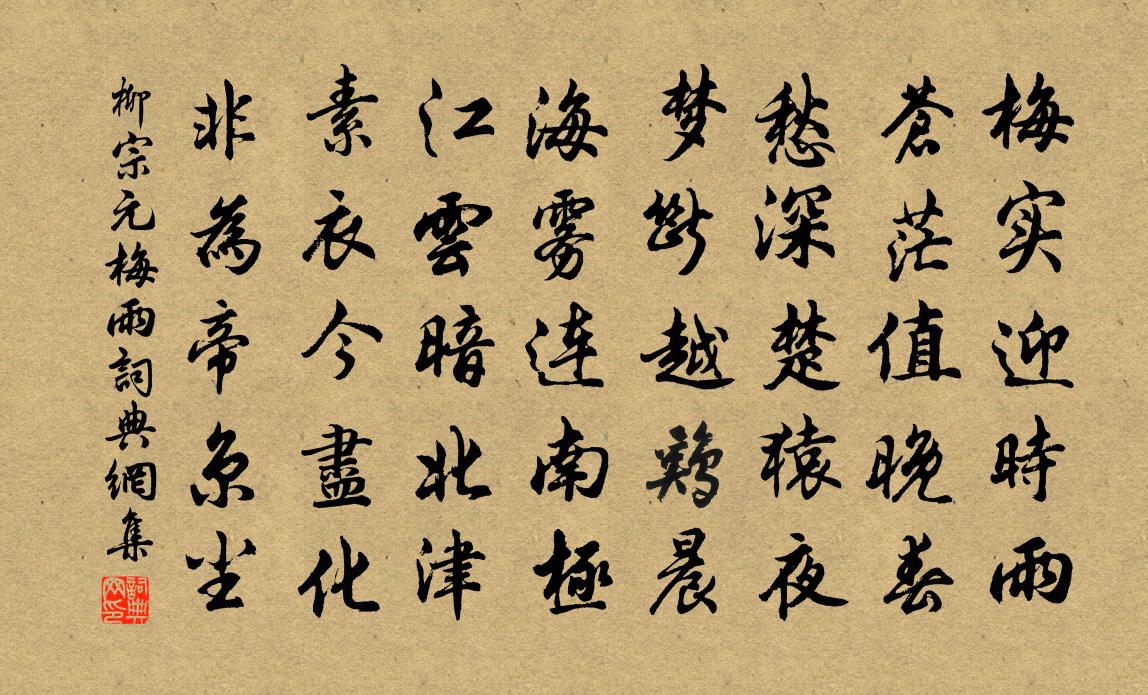 梅实迎時雨
蒼茫值晚春
愁深楚猿夜
梦断越鷄晨
海雾連南極
江雲暗北津
素衣今盡化
非為帝京尘
柳宗元梅雨詞典網集
詞典网印